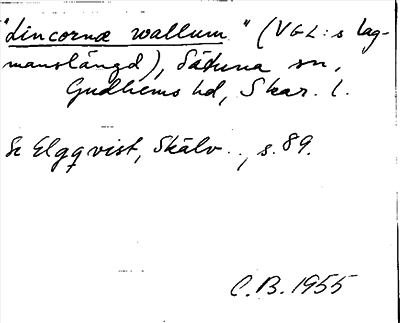 "Lincornæ wallum" (VGL:s lag-
manslängd), Sätuna sn,
Gudhems hd, Skar. l.
Se Elgqvist, Skälv.., s. 89.
C.B. 1955